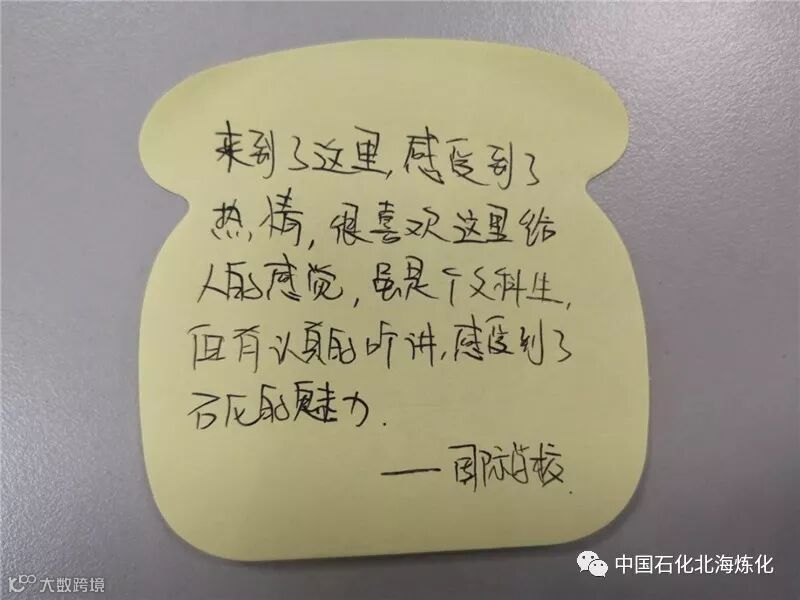 来到了这里,感受到了
热情,很喜欢这里给
人的感觉,虽是个文科生,
但有认真的听讲,感受到了
石化的魅力.
——国际学校.
中国石化北海炼化
大数跨境